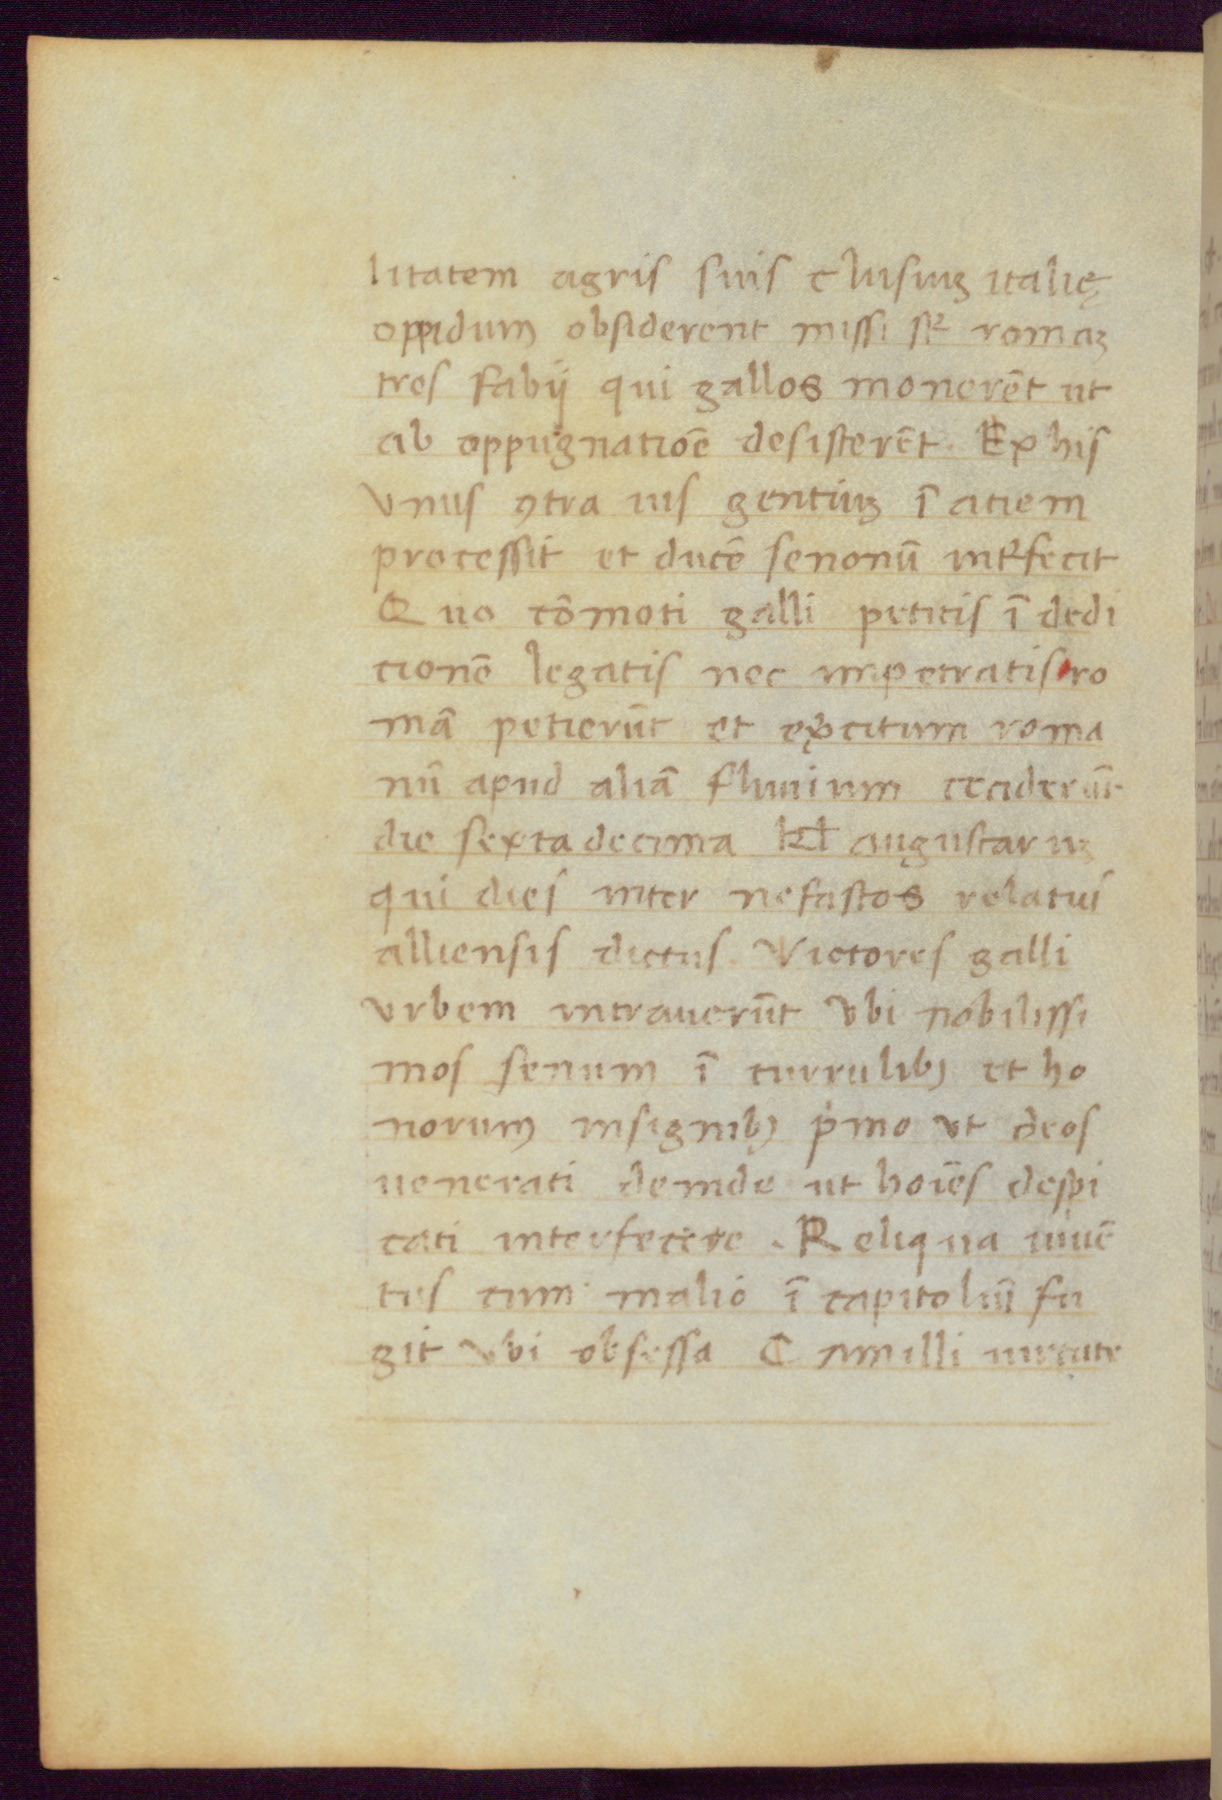 litatem agris suis cluisiuꝫ italię
oppidum obsiderent missi sꝛ̃ romaꝫ
tres fabij qui gallos monerẽt ut
ab oppugnatiõe desisterẽt. Ex his
vnus ꝯtra ius gentiuꝫ ĩ aciem
processit et ducẽ senonũ intꝛfecit
Quo cõmoti galli petitis ĩ dedi
cionẽ legatis nec impetratis ro
mã petierũt et exꝑcitum roma
nũ apud aliã fluuium ceciderũt
die sexta decima kł augustaruꝫ
qui dies inter nefastos relatus
alliensis dictus. Victores galli
vrbem intrauerũt vbi nobilissi
mos senum ĩ currulibꝫ et ho
norum insignibꝫ pͥmo vt deos
uenerati deinde ut hoĩes despi
cati interfecere. Reliqua iuuẽ
tus cum malio ĩ capitoliũ fu
git vbi obsessa Camilli uirtute